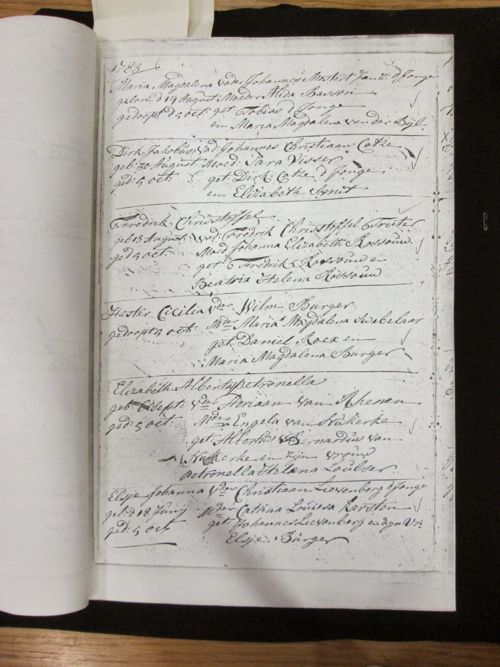 1783
Maria Magdalena vader Johannes Mostert Jansz d Jonge
gebooren d 19 August Moeder Alida
gedoopt d 5 oct get Tobias d Jonge
en Maria Magdalena van der Byl
Dirk Jakobus vad Johannes Christiaan Cotze
geb: 20 August Moed: Sara Visser
ged: 5 oct: get: Dirk Cotze d Jonge
en Elizabeth Smit
Fredrik Christoffel
geb: 13 August vad Fredrik Christoffel
ged 5 oct: Moed Johanna Elizabeth Rossouw
get: Fredrik Rossouw en
Beatrix Helena Rossouw
Hester Cicilia vder Wilm Burger
gedoopt 5 oct: Mder Maria Magdalena
get: Daniel en
Maria Magdalena Burger
Elizabeth Alberta petronella
geb: Sept: vder Adriaan van Rhenen
ged: 5 oct: Mder Engela van Nukerke
get: Albertus Bernardus van
Nukerke en zijn vrouw
petronella Helena Loubser
Elsje Johanna vder Christiaan Lievenberg d Jonge
geb: d 18 Junij Mder Catrina Louiesa Karsten
ged: 5 oct get: Johannes Lievenberg en zyn
Elsje Burger